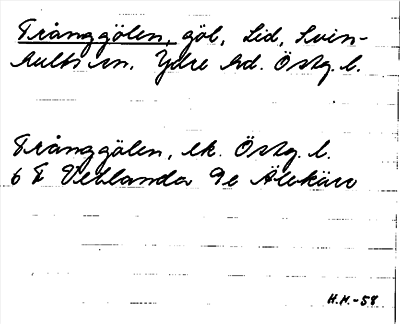 Trånggölen, göl, Lid, Svin-
hults sn. Ydre hd. Östg. l.
Trånggölen, ek. Östg. l.
6 F Vetlanda 9e Älekärr
H.H.-58